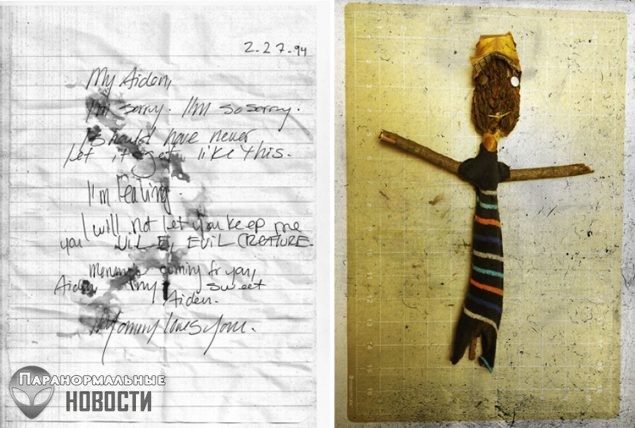 2.27.94
My Aiden,
I'm sorry. I'm so sorry.
I should have never
let it get like this.
I'm leaving
I will not let you keep me
you VILE, EVIL CREATURE.
coming for you,
Aiden my sweet
Aiden.
Mommy loves you.
Паранормальные
НОВОСТИ